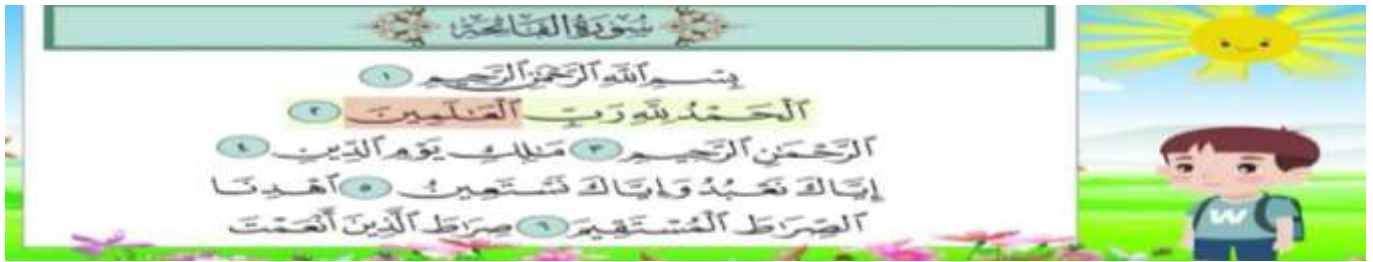 سُورَةُ الفَاتِحَةِ
بِسْمِ ٱللَّهِ ٱلرَّحْمَٰنِ ٱلرَّحِيمِ ١
ٱلْحَمْدُ لِلَّهِ رَبِّ ٱلْعَٰلَمِينَ ٢
ٱلرَّحْمَٰنِ ٱلرَّحِيمِ ٣ مَٰلِكِ يَوْمِ ٱلدِّينِ ٤
إِيَّاكَ نَعْبُدُ وَإِيَّاكَ نَسْتَعِينُ ٥ ٱهْدِنَا
ٱلصِّرَٰطَ ٱلْمُسْتَقِيمَ ٦ صِرَٰطَ ٱلَّذِينَ أَنْعَمْتَ
W